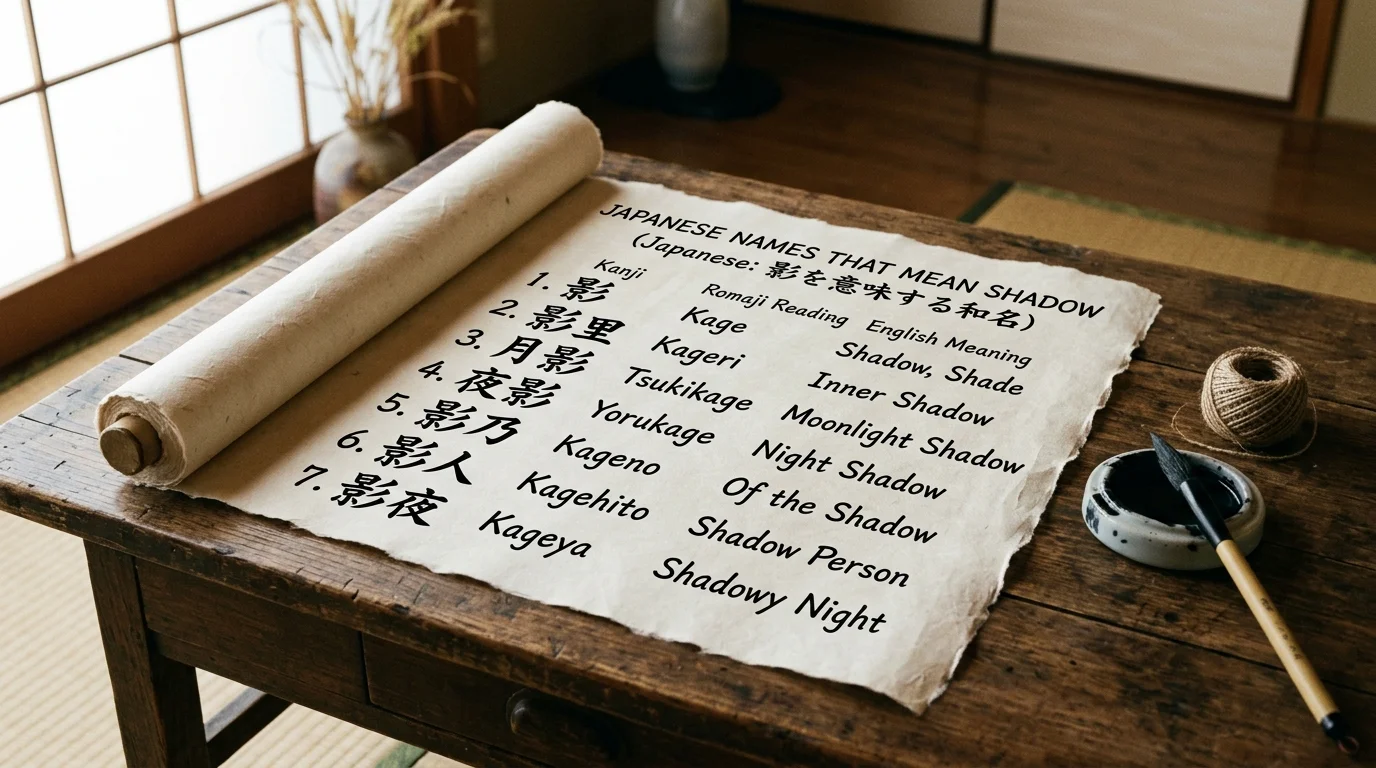 JAPANESE NAMES THAT MEAN SHADOW
(Japanese: 影を意味する和名)
Kanji Romaji Reading English Meaning
1. 影 Kage Shadow, Shade
2. 影里 Kageri Inner Shadow
3. 月影 Tsukikage Moonlight Shadow
4. 夜影 Yorukage Night Shadow
5. 影乃 Kageno Of the Shadow
6. 影人 Kagehito Shadow Person
7. 影夜 Kageya Shadowy Night